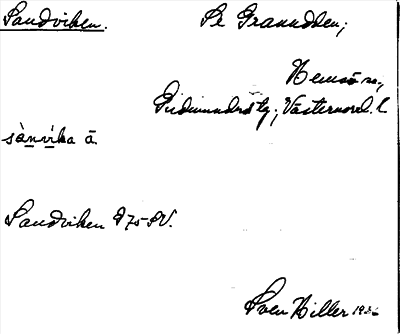 Sandviken. Se Granudden;
Hemsö sn.,
Gudmundrå tg., Västernorrl. l.
sànvíka ā
Sandviken 975 SV.
Sven Hiller 1936